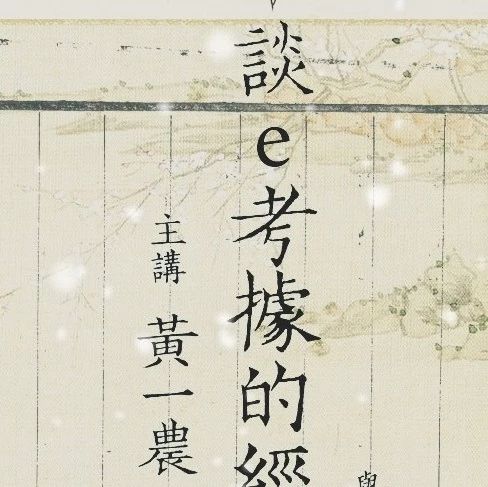 談e考據的經
主講 黃一農